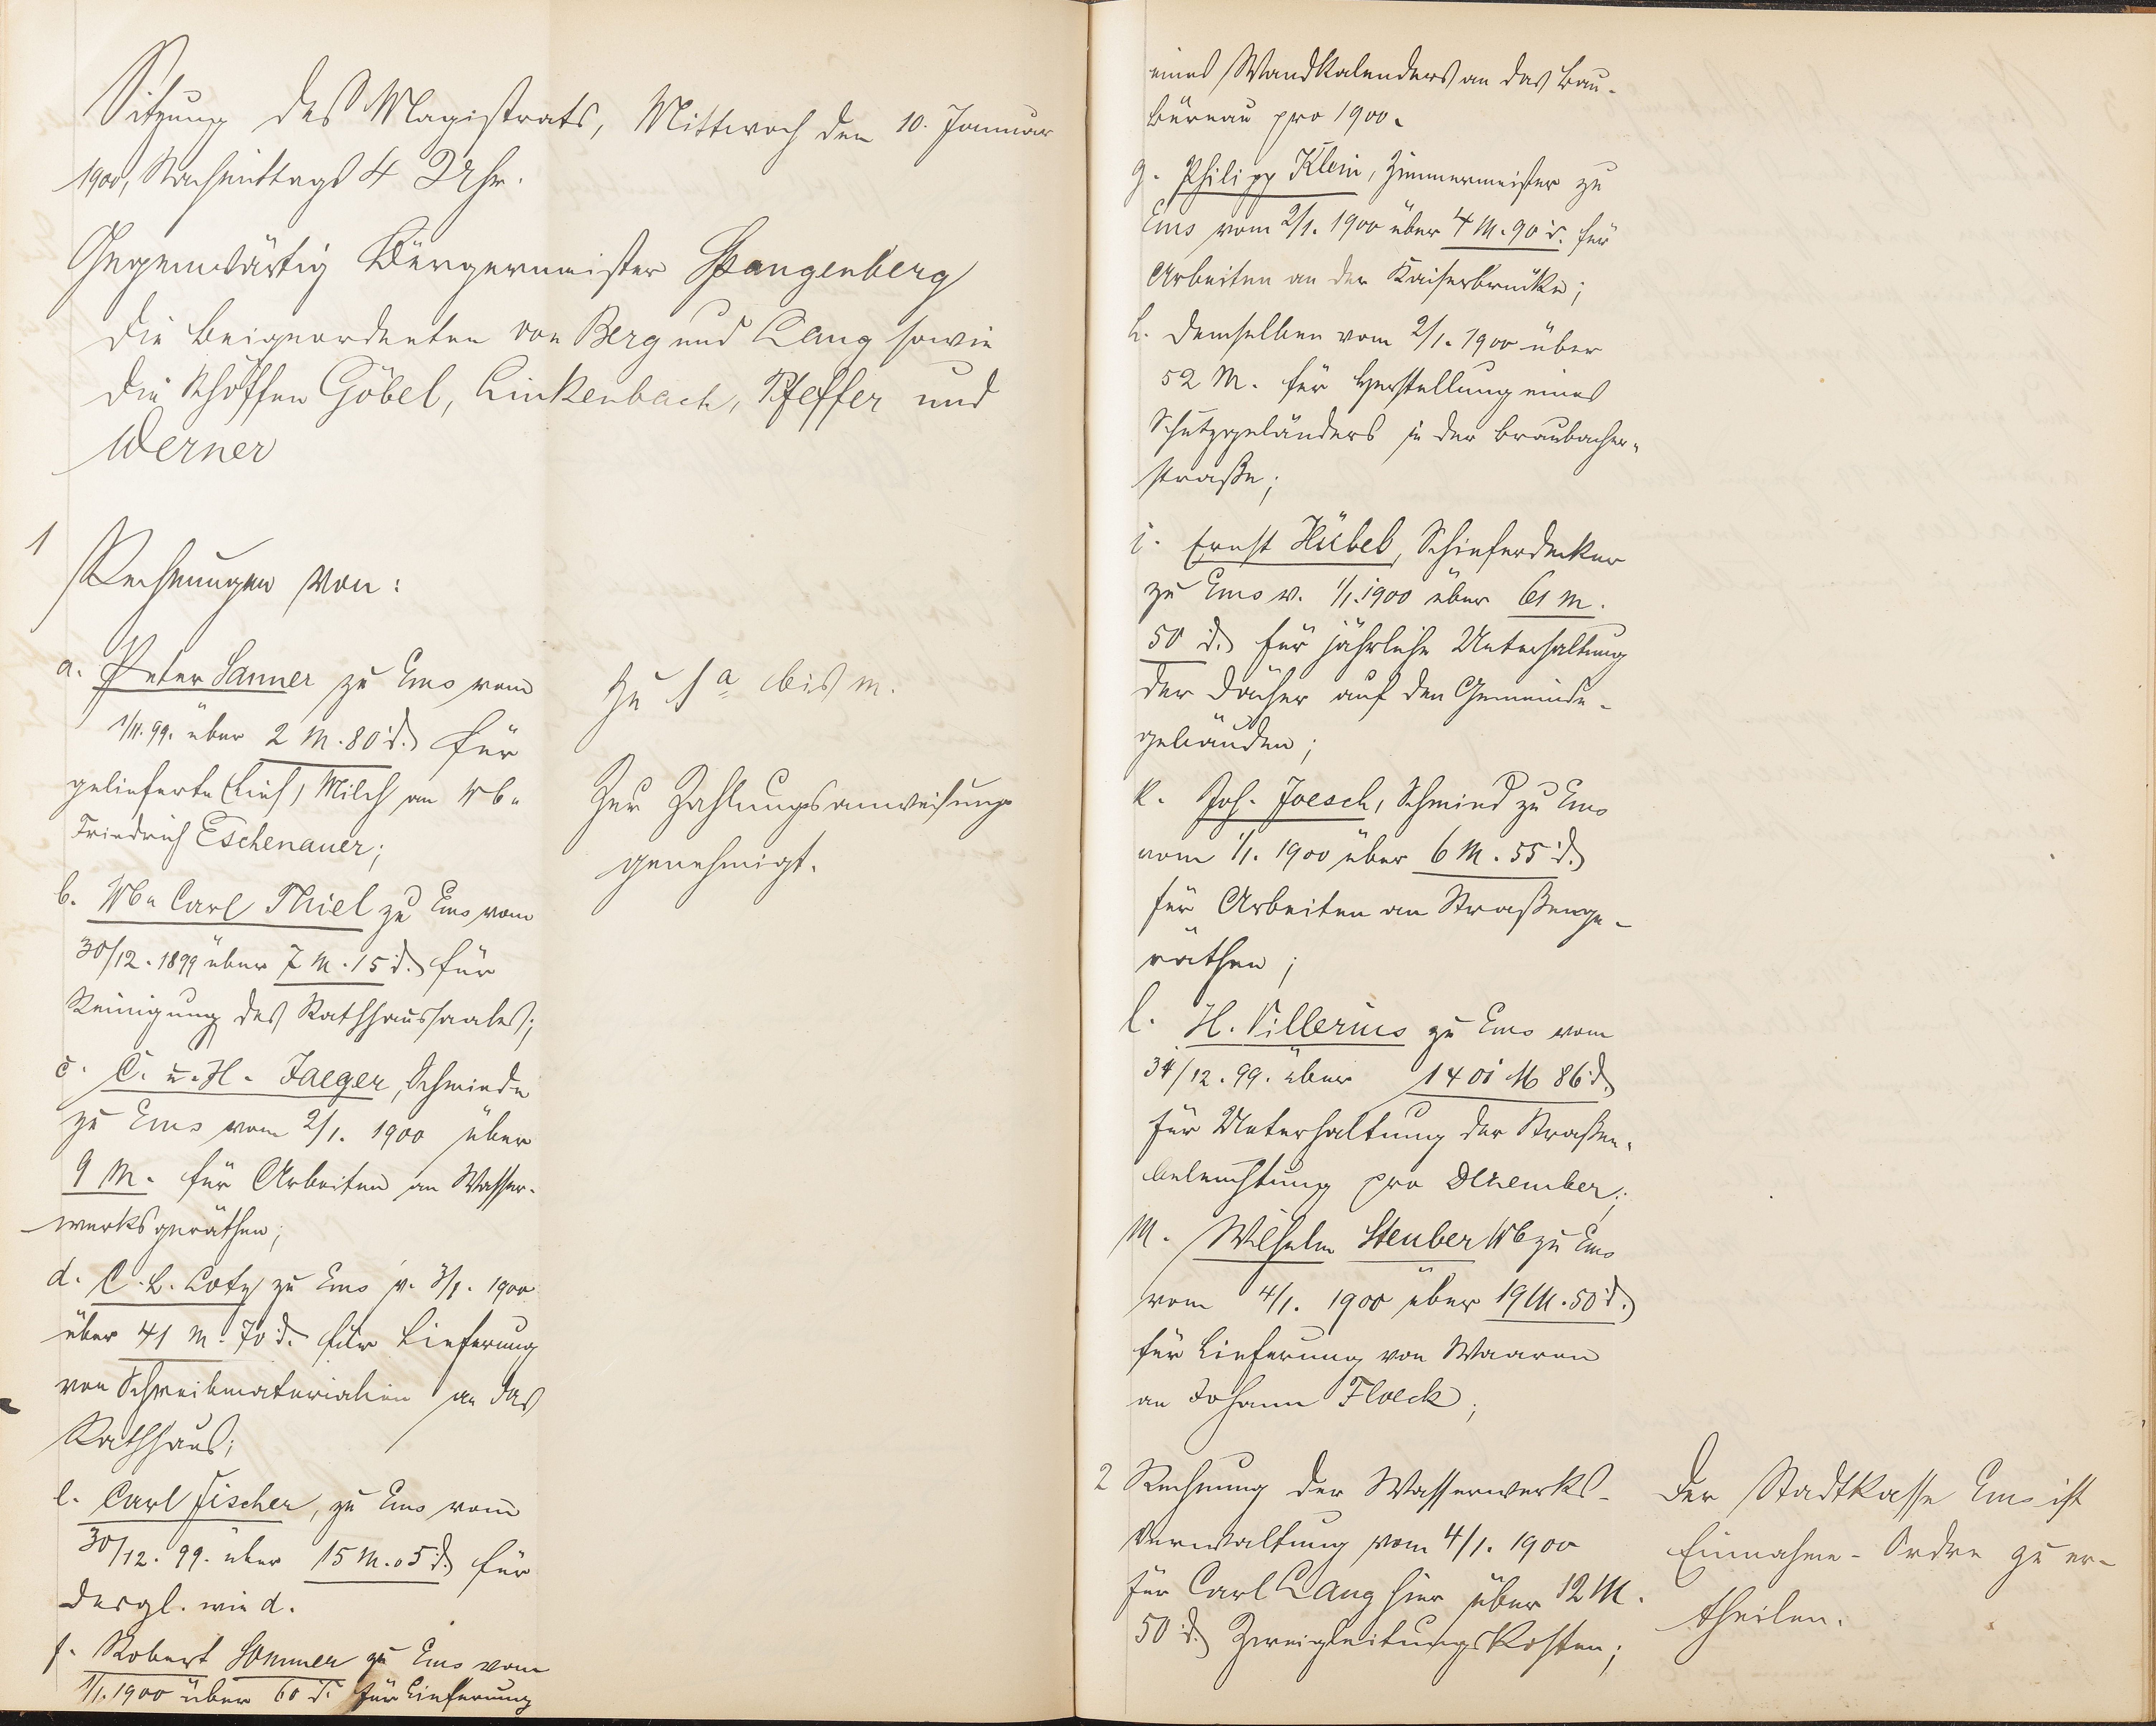 Sitzung des Magistrats, Mittwoch den 10. Januar
1900, Nachmittags 4 Uhr.
Gegenwärtig Bürgermeister Spangenberg
die Beigeordneten von Berg und Lang sowie
die Schöffen Göbel, Linkenbach, Pfeffer und
Werner
1
Rechnungen von:
a. Peter Sanner zu Ems vom
1/11. 99. über 2 M. 80 d. für
gelieferte Milch an Wb.
Friedrich Eschenauer;
b. Wb. Carl Thiel zu Ems vom
30/12. 1899 über 7 M. 15 d. für
Reinigung des Rathhaussaales;
c. C. u. H. Jaeger, Schmiede
zu Ems vom 2/1. 1900 über
9 M. für Arbeiten an Wasser-
werksgeräthen;
d. C. B. Coty zu Ems v. 3/1. 1900
über 41 M. 70 d. für Lieferung
von Schreibmaterialien an das
Rathhaus;
e. Carl Fischer, zu Ems vom
30/12. 99. über 15 M. 05 d. für
desgl. wie d.
f. Robert Sommer zu Ems vom
1/1. 1900 über 60 d. für Lieferung
zu 1 a bis m.
Zur Zahlungsanweisung
genehmigt.
eines Wandkalenders an das Bau-
büreau pro 1900.
g. Philipp Klein, Zimmermeister zu
Ems vom 2/1. 1900 über 4 M. 90 d. für
Arbeiten an der Kaiserbrücke;
h. demselben vom 2/1. 1900 über
52 M. für Herstellung eines
Schutzgeländers in der Braubacher-
straße;
i. Ernst Hübel, Schieferdecker
zu Ems v. 1/1. 1900 über 61 M.
50 d. für jährliche Unterhaltung
der Dächer auf den Gemeinde-
gebäuden;
k. Joh. Joesch, Schmied zu Ems
vom 1/1. 1900 über 6 M. 55 d.
für Arbeiten an Straßenge-
räthen;
l. H. Villerius zu Ems vom
31/12. 99. über 1401 M 86 d.
für Unterhaltung der Straßen-
beleuchtung pro Dezember;
m. Wilhelm Steuber Wb zu Ems
vom 4/1. 1900 über 19 M. 50 d.
für Lieferung von Waaren
an Johann Floeck;
2 Rechnung der Wasserwerks-
Verwaltung vom 4/1. 1900
für Carl Lang hier über 12 M.
50 d. Zweigleitungskosten;
Der Stadtkasse Ems ist
Einnahme-Ordre zu er-
theilen.